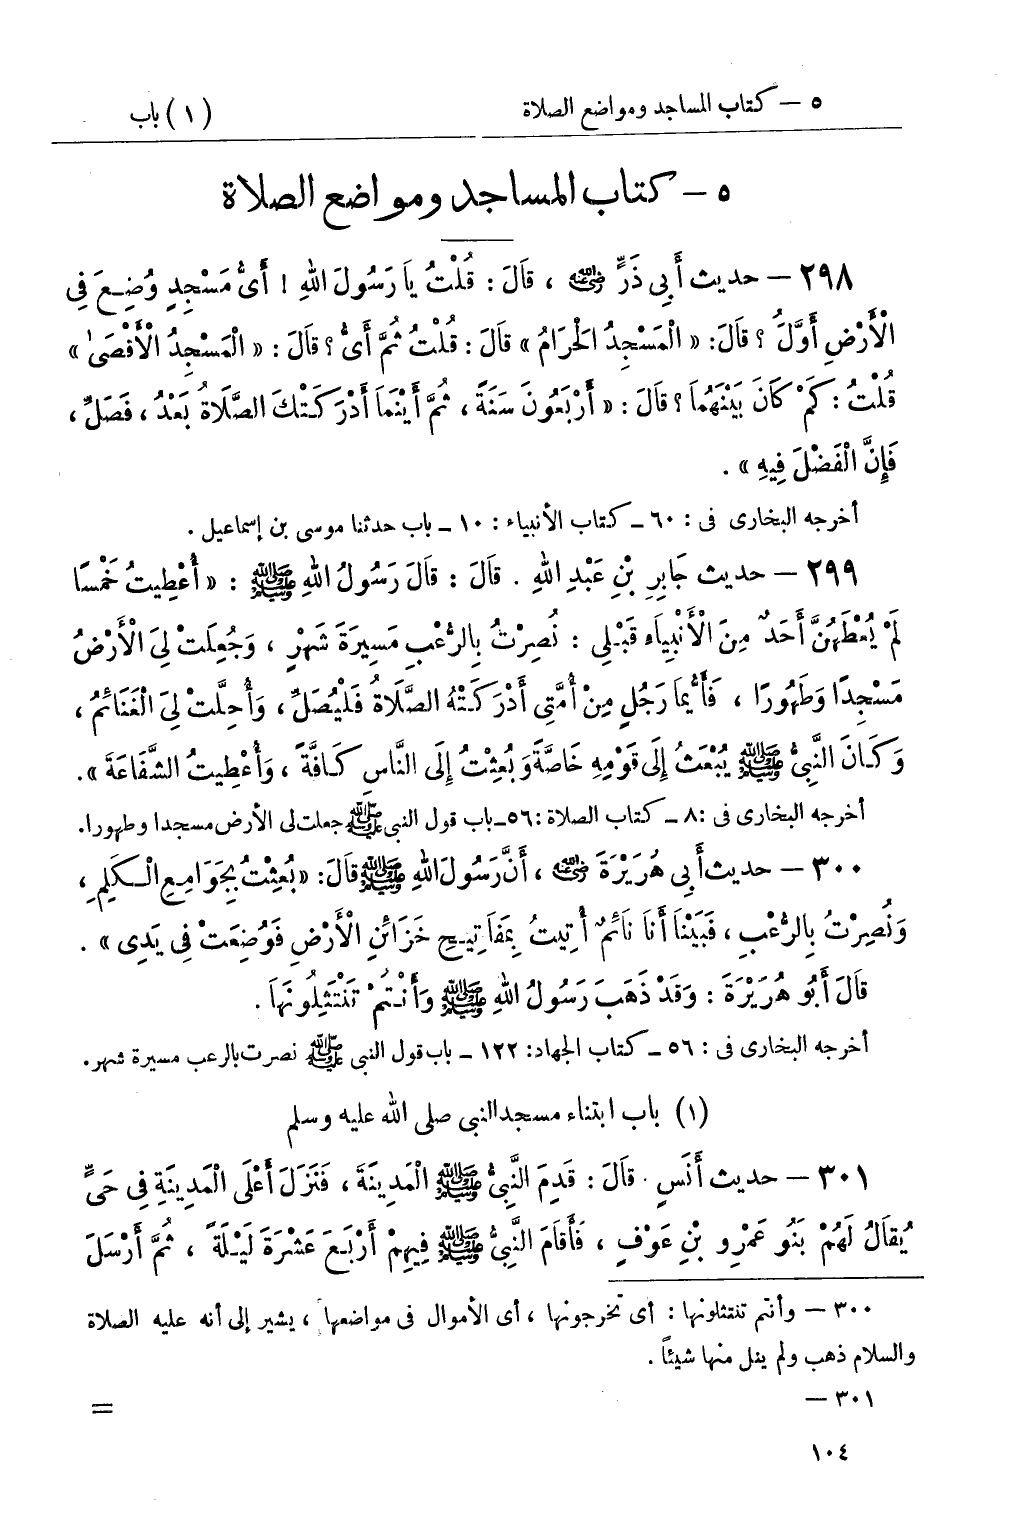 ٥ — كتاب المساجد ومواضع الصلاة (١) باب
٥ — كتاب المساجد ومواضع الصلاة
٢٩٨ — حديث أَبِى ذَرٍّ رضي الله عنه ، قَالَ : قُلْتُ يَا رَسُولَ اللهِ ! أَىُّ مَسْجِدٍ وُضِعَ فِى
الْأَرْضِ أَوَّلُ ؟ قَالَ: « الْمَسْجِدُ الْحَرَامُ » قَالَ : قُلْتُ ثُمَّ أَىُّ ؟ قَالَ : « الْمَسْجِدُ الْأَقْصَىٰ »
قُلْتُ : كَمْ كَانَ بَيْنَهُمَا ؟ قَالَ : « أَرْبَعُونَ سَنَةً ، ثُمَّ أَيْنَمَا أَدْرَكَتْكَ الصَّلَاةُ بَعْدُ ، فَصَلِّ ،
فَإِنَّ الْفَضْلَ فِيهِ » .
أخرجه البخارى فى : ٦٠ — كتاب الأنبياء : ١٠ — باب حدثنا موسى بن إسماعيل .
٢٩٩ — حديث جَابِرِ بْنِ عَبْدِ اللهِ . قَالَ : قَالَ رَسُولُ اللهِ ﷺ : « أُعْطِيتُ خَمْسًا
لَمْ يُعْطَهُنَّ أَحَدٌ مِنَ الْأَنْبِيَاءِ قَبْلِى : نُصِرْتُ بِالرُّعْبِ مَسِيرَةَ شَهْرٍ ، وَجُعِلَتْ لِىَ الْأَرْضُ
مَسْجِدًا وَطَهُورًا ، فَأَيُّمَا رَجُلٍ مِنْ أُمَّتِى أَدْرَكَتْهُ الصَّلَاةُ فَلْيُصَلِّ ، وَأُحِلَّتْ لِىَ الْغَنَائِمُ ،
وَكَانَ النَّبِىُّ ﷺ يُبْعَثُ إِلَى قَوْمِهِ خَاصَّةً وَبُعِثْتُ إِلَى النَّاسِ كَافَّةً ، وَأُعْطِيتُ الشَّفَاعَةَ » .
أخرجه البخارى فى : ٨ — كتاب الصلاة : ٥٦ — باب قول النبى ﷺ جعلت لى الأرض مسجدا وطهورا .
٣٠٠ — حديث أَبِى هُرَيْرَةَ رضي الله عنه ، أَنَّ رَسُولَ اللهِ ﷺ قَالَ : « بُعِثْتُ بِجَوَامِعِ الْكَلِمِ ،
وَنُصِرْتُ بِالرُّعْبِ ، فَبَيْنَا أَنَا نَائِمٌ أُتِيتُ بِمَفَاتِيحِ خَزَائِنِ الْأَرْضِ فَوُضِعَتْ فِى يَدِى » .
قَالَ أَبُو هُرَيْرَةَ : وَقَدْ ذَهَبَ رَسُولُ اللهِ ﷺ وَأَنْتُمْ تَنْتَثِلُونَهَا .
أخرجه البخارى فى : ٥٦ — كتاب الجهاد : ١٢٢ — باب قول النبى ﷺ نصرت بالرعب مسيرة شهر .
(١) باب ابتناء مسجد النبى صلى الله عليه وسلم
٣٠١ — حديث أَنَسٍ . قَالَ : قَدِمَ النَّبِىُّ ﷺ الْمَدِينَةَ ، فَنَزَلَ أَعْلَى الْمَدِينَةِ فِى حَىٍّ
يُقَالُ لَهُمْ بَنُو عَمْرِو بْنِ عَوْفٍ ، فَأَقَامَ النَّبِىُّ ﷺ فِيهِمْ أَرْبَعَ عَشْرَةَ لَيْلَةً ، ثُمَّ أَرْسَلَ
٣٠٠ — وأنتم تنتثلونها : أى تخرجونها ، أى الأموال فى مواضعها ، يشير إلى أنه عليه الصلاة
والسلام ذهب ولم ينل منها شيئاً .
٣٠١ —
=
١٠٤